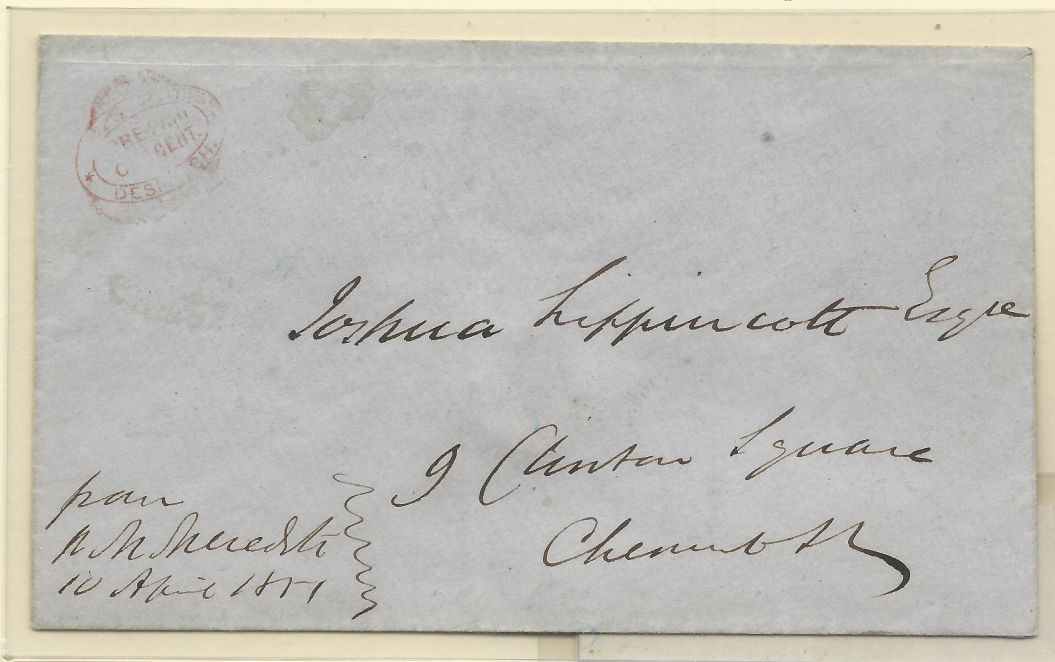 PRE-PAID
CENT.
DESPATCH.
Joshua Lippincott Esqre
9 Clinton Square
Chesnut St
from
Meredith
10 April 1851